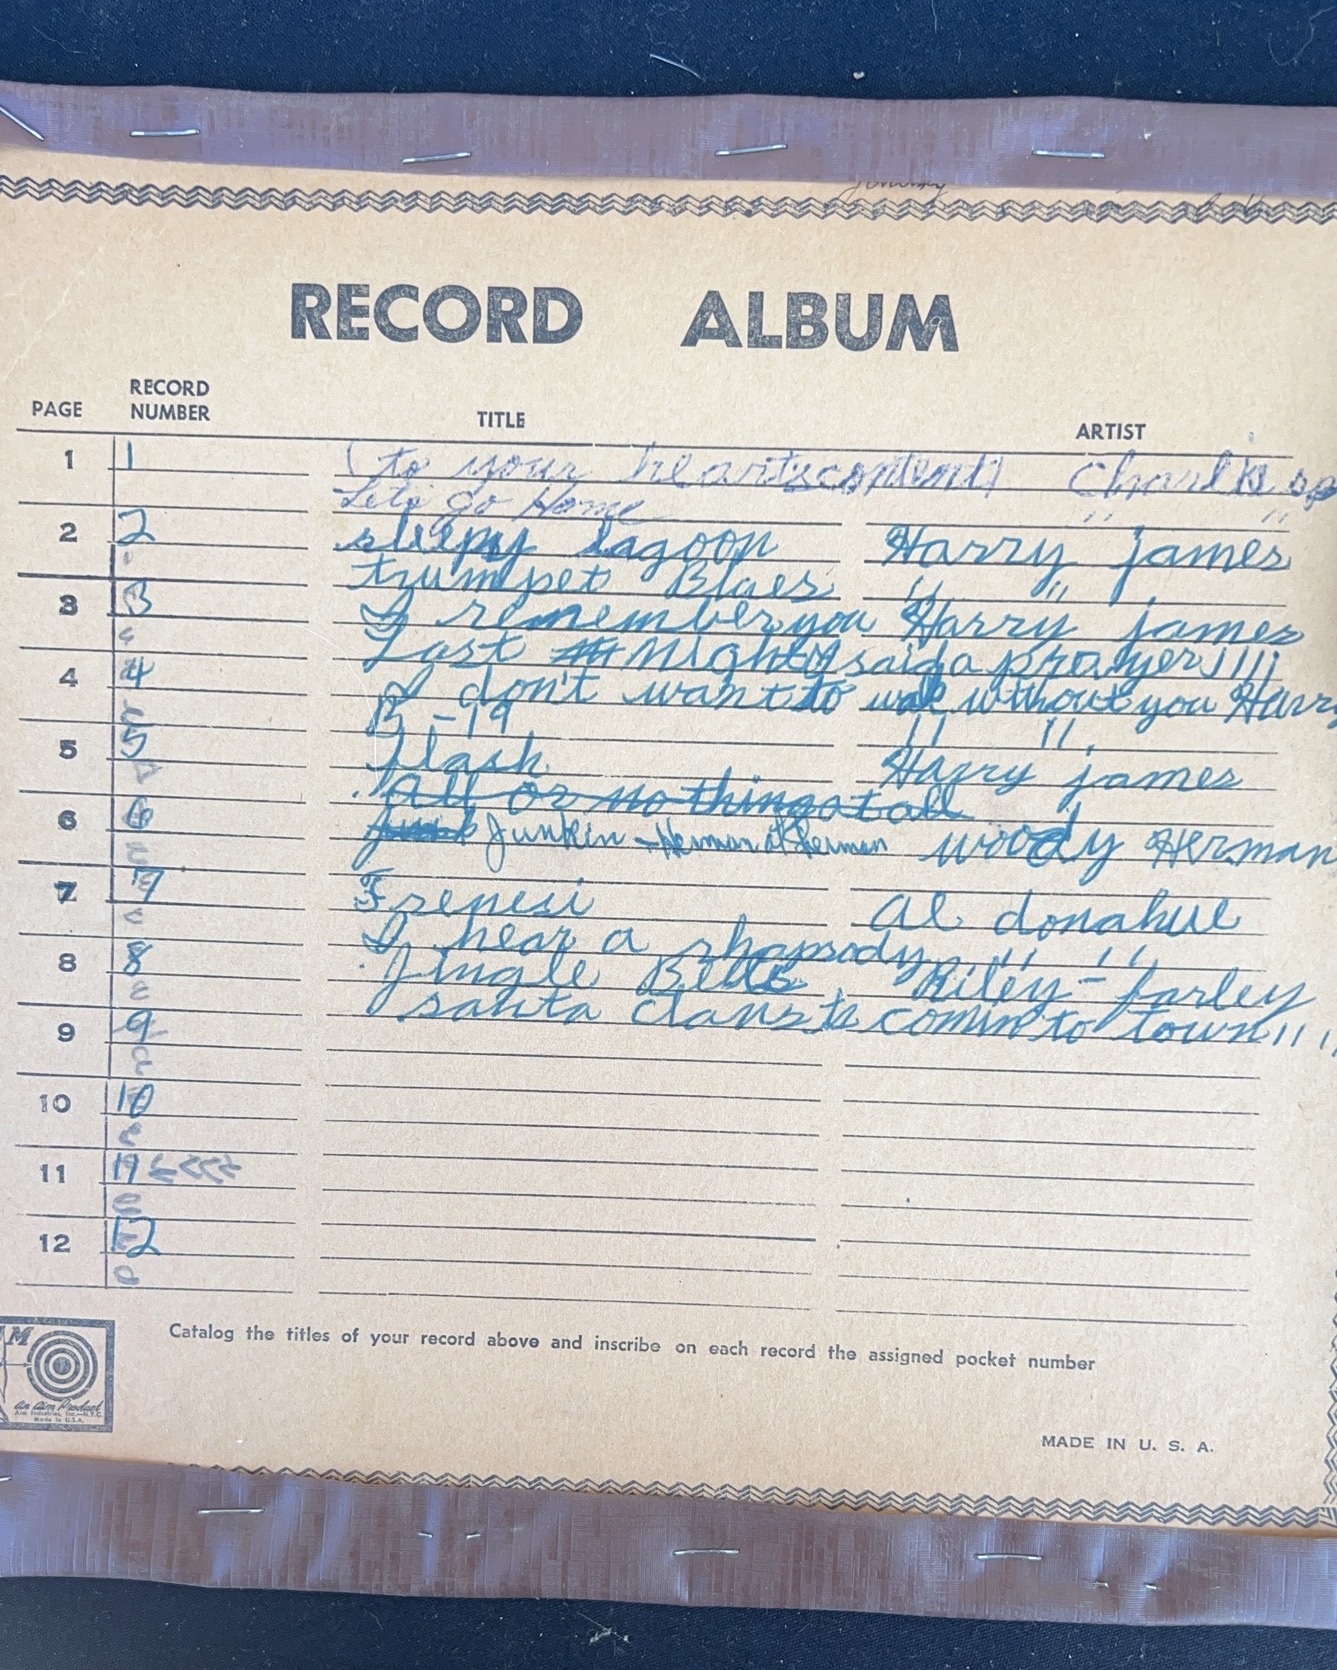 jimmy
RECORD ALBUM
PAGE RECORD NUMBER TITLE ARTIST
1 1 (to your heartscontent) Charlie
Lets go Home " "
2 2 sleepy lagoon Harry james
trumpet Blues " "
3 3 I remember you Harry james
Last night I said a prayer " "
4 4 I don't want to walk without you Harry
B-19 " "
5 5 Flash Harry james
All or nothing at all
6 6 Junk Junkin - Herman at Sherman woody Herman
7 7 Frenesi Al donahue
I hear a rhapsody " "
8 8 Jingle Bells Riley-farley
santa claus is comin to town " "
9 9
10 10
11 11 <<<<
12 12
Catalog the titles of your record above and inscribe on each record the assigned pocket number
M
An Aim Product
Aim Industries, Inc.—N.Y.C.
Made in U.S.A.
MADE IN U. S. A.